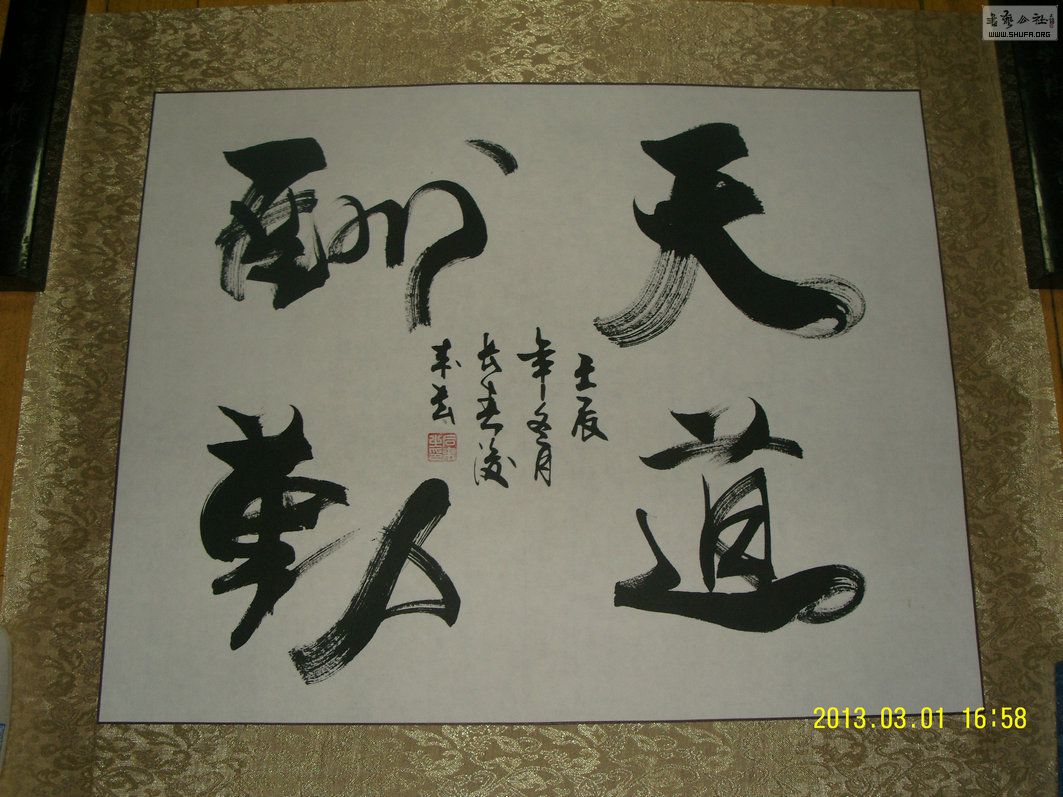 天道
酬勤
壬辰
年冬月
长春
書藝公社
WWW.SHUFA.ORG
2013.03.01 16:58